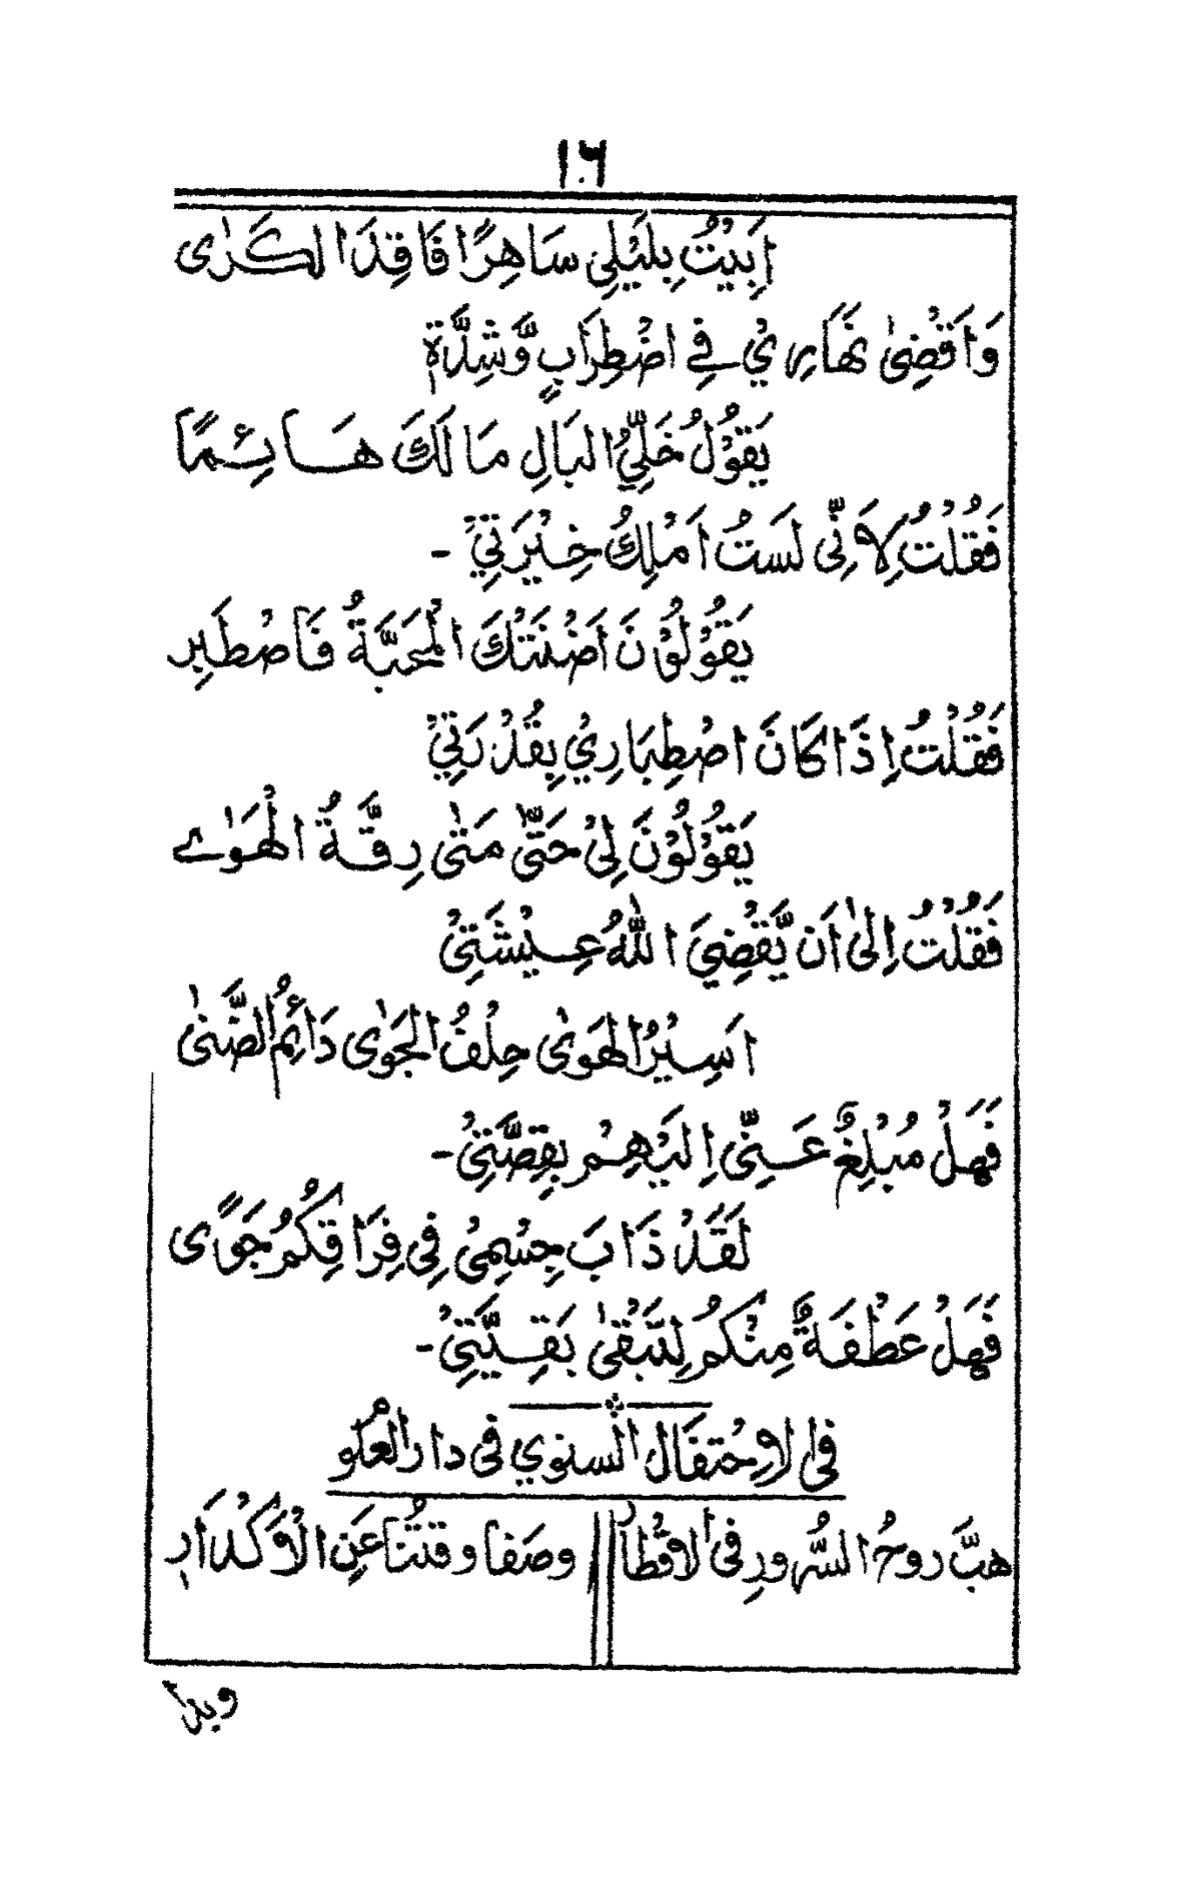 ١٠٦
اَبِيْتُ بِلَيْلِي سَاهِرًا فَاقِدَ الكَرٰى
وَاَقْضِىٰ نَهَارِيْ فِے اضْطِرَابٍ وَّشِدَّةٍ
يَقُوْلُ خَلِيُّ البَالِ مَالَكَ هَائِمًا
فَقُلْتُ لِاَنِّى لَسْتُ اَمْلِكُ خِيْرَتِيْ -
يَقُوْلُوْنَ اَضْنَتْكَ الْمَحَبَّةُ فَاصْطَبِر
فَقُلْتُ اِذَا كَانَ اصْطِبَارِيْ بِقُدْرَتِيْ
يَقُوْلُوْنَ لِيْ حَتّٰى مَتٰى رِقَّةُ الْهَوٰے
فَقُلْتُ اِلىٰ اَن يَّقْضِيَ اللّٰهُ عِيْشَتِيْ
اَسِيْرُ الهَوىٰ حِلْفُ الجَوٰى دَائِمُ الضَّنىٰ
فَهَلْ مُبْلِغٌ عَنِّى اِلَيْهِمْ بِقِصَّتِيْ -
لَقَدْ ذَابَ جِسْمِيْ فِى فِرَاقِكُمْ جَوًى
فَهَلْ عَطْفَةٌ مِنْكُمْ لِتَبْقىٰ بَقِيَّتِيْ -
فى الاحْتِفَال السنوي فى دار العُلُو
هبَّ روحُ السُّرورِ فى الاقْطَارِ وصَفا وقتُنَا عَنِ الْاَكْدَارِ
وبدا